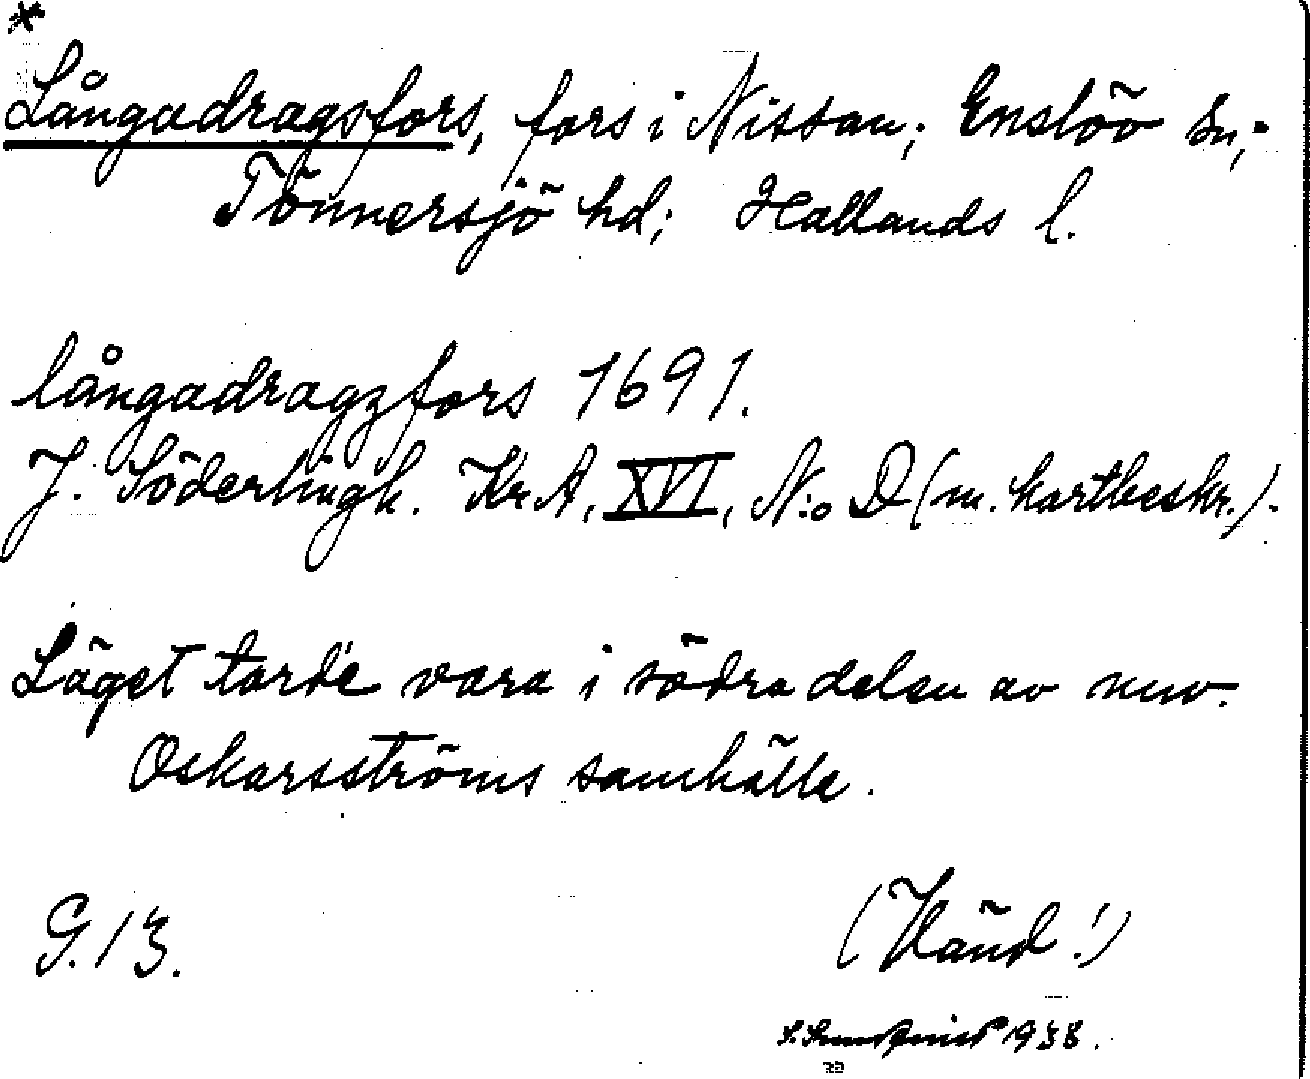 *
Långadragsfors, fors i Nissan; Enslöv sn;
Tönnersjö hd; Hallands l.
långadragzfors 1691.
J. Söderlingk. Kr.A, XVI, N:o D (m. kartbeskr.).
Läget torde vara i södra delen av nuv.
Oskarsströms samhälle.
G. 13.
(Vänd!)
1938.